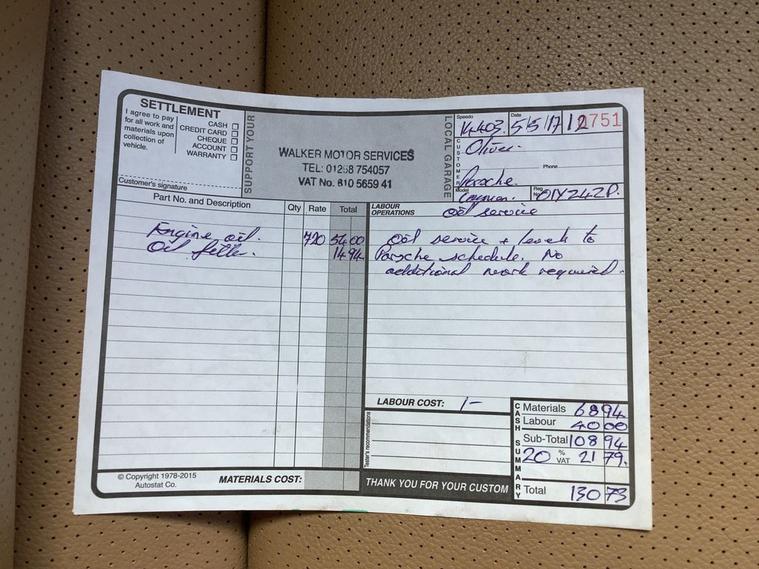 SETTLEMENT
I agree to pay
for all work and
materials upon
collection of
vehicle.
CASH
CREDIT CARD
CHEQUE
ACCOUNT
WARRANTY
Customer's signature
SUPPORT YOUR
WALKER MOTOR SERVICES
TEL: 01268 754057
VAT No. 810 5659 41
LOCAL GARAGE
Speedo
14403.
Date
5/5/17
2751
CUSTOMER
Oliver.
Phone
Porsche
Model
Cayman.
Reg No.
Part No. and Description
Qty
Rate
Total
Engine oil. 720 54 00
Oil filter. 14 94
LABOUR
OPERATIONS
Oil service
Oil service + levels to
Porsche schedule. No
additional work required.
LABOUR COST: 1-
Tester's recommendations
CASH SUMMARY
Materials 68 94
Labour 40 00
Sub-Total 108 94
20 % VAT 21 79.
Total 130 73
© Copyright 1978-2015
Autostat Co.
MATERIALS COST:
THANK YOU FOR YOUR CUSTOM